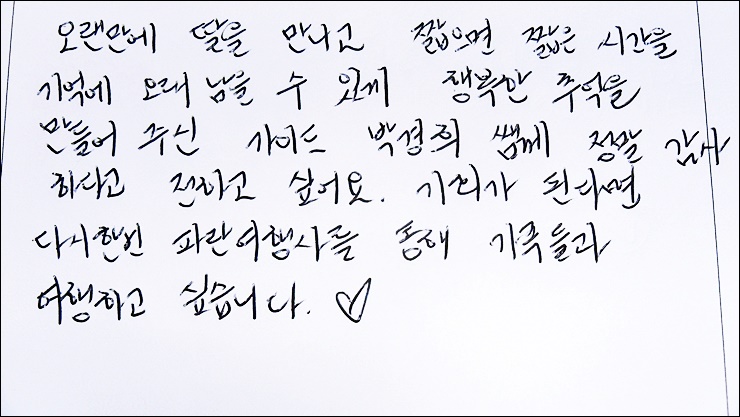 오랜만에 딸을 만나고 짧으면 짧은 시간을
기억에 오래 남을 수 있게 행복한 추억을
만들어 주신 가이드 박경희 쌤께 정말 감사
하다고 전하고 싶어요. 기회가 된다면
다시한번 파란여행사를 통해 가족들과
여행하고 싶습니다. ♡